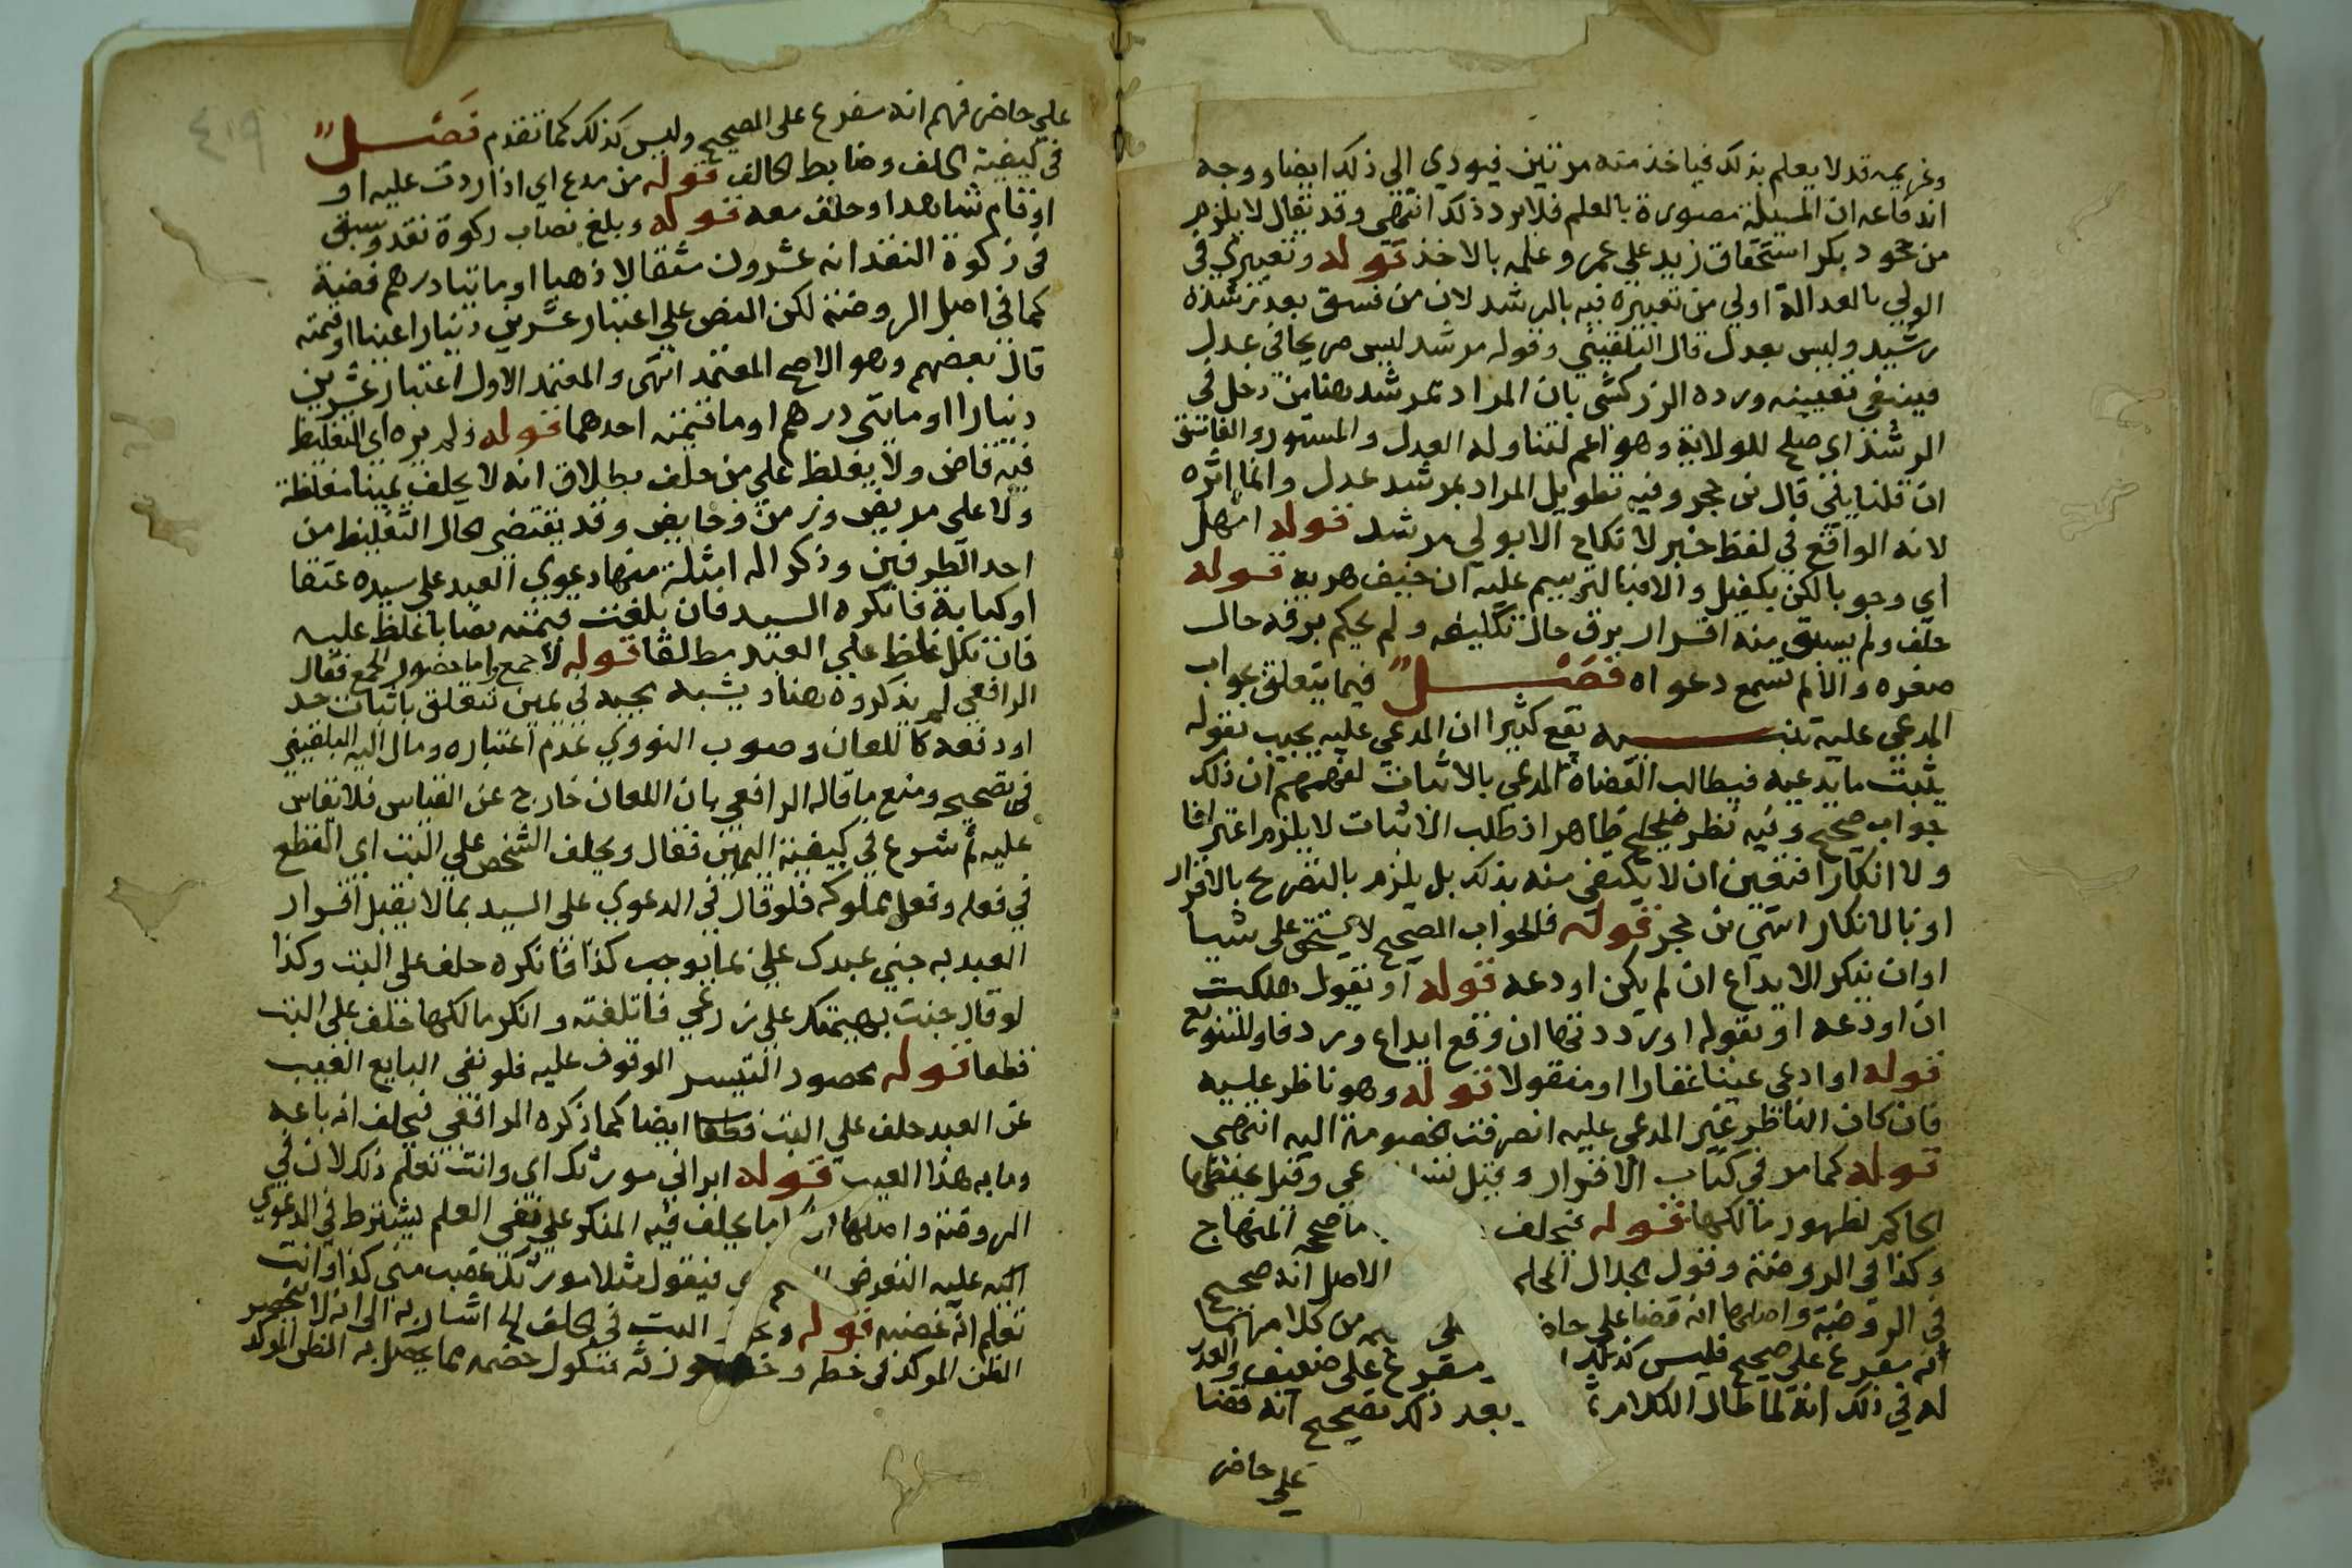 وغريمه قد لا يعلم بذلك فياخذ منه مرتين فيودي الى ذلك ايضا ووجه
اندفاعه ان المسيلة مصورة بالعلم فلا يرد ذلك انتهى وقد يقال لا يلزم
من جحود بكر استحقاق زيد على عمرو علمه بالاخذ قوله وتعبيري في
الولي بالعدالة اولي من تعبيره فيه بالرشد لان من فسق بعد رشده
رشيد وليس بعدل قال البلقيني وقوله مرشد ليس صريحا في عدل
فينبغي تعيينه ورده الزركشي بان المراد بمرشد هنا من دخل في
الرشد اي صلح للولاية وهو اعم لتناوله العدل والمستور والفاسق
ان قلنا يلي قال بن حجر وفيه تطويل المراد بمرشد عدل وانما اثره
لانه الواقع في لفظ خبر لا نكاح الا بولي مرشد قوله امهل
اي وجوبا لكن بكفيل والا فبالترسيم عليه ان خيف هربه قوله
حلف ولم يسبق منه اقرار برق حال تكليفه ولم يحكم برقه حال
صغره والا لم تسمع دعواه فصل فيما يتعلق بجواب
المدعي عليه تنبيه يقع كثيرا ان المدعي عليه يجيب بقوله
يثبت ما يدعيه فيطالب القضاة المدعي بالاثبات لفهمهم ان ذلك
جواب صحيح وفيه نظر ظاهر اذ طلب الاثبات لا يلزم اعترافا
ولا انكارا فتعين ان لا يكتفى منه بذلك بل يلزم بالتصريح بالاقرار
او بالانكار انتهي بن حجر قوله فالجواب الصحيح لا يستحق على شيا
او ان ينكر الايداع ان لم يكن اودعه قوله او يقول هلكت
ان اودعه او بقوله او رددتها ان وقع ايداع ورد فاو للتنويع
قوله او ادعى عينا عقارا او منقولا قوله وهو ناظر عليه
فان كان الناظر غير المدعي عليه انصرفت الخصومة اليه انتهى
قوله كما مر في كتاب الاقرار وقيل عي وقيل يحفظها
الحاكم لظهور مالكها قوله فيحلف ما صححه المنهاج
وكذا في الروضة وقول الجلال المحلي الاصل انه صحيح
في الروضة واصلها انه قضا على حاضر من كلامهما
انه مفرع على صحيح فليس كذلك مفرع على ضعيف والعذر
له في ذلك انه لما طال الكلام بعد ذكر تصحيح انه قضا
علي حاضر
٤١٩
علي حاضر فهم انه مفرع على الصحيح وليس كذلك كما تقدم فصل
في كيفية الحلف وضابط الحالف قوله من مدع اي اذا ردت عليه او
او قام شاهدا وحلف معه قوله وبلغ نصاب زكوة نقد وسبق
في زكوة النقد انه عشرون مثقالا ذهبا او مايتا درهم فضة
كما في اصل الروضة لكن النص علي اعتبار عشرين دينارا عينا او قيمته
قال بعضهم وهو الاصح المعتمد انتهى والمعتمد الاول اعتبار عشرين
دينارا او مايتي درهم او ما قيمته احدهما قوله ولم يره اي التغليظ
فيه قاض ولا يغلظ علي من حلف بطلاق انه لا يحلف يمينا مغلظة
ولا على مريض وزمن وحايض وقد يقتضى الحال التغليظ من
احد الطرفين وذكر اله امثلة منها دعوي العبد على سيده عتقا
او كتابة فانكره السيد فان بلغت قيمته نصابا غلظ عليه
فان نكل غلظ علي العبد مطلقا قوله لا جمع واما حضور الجمع فقال
الرافعي لم يذكروه هنا ويشبه مجيه في يمين تتعلق باثبات حد
او دفعه كاللعان وصوب النووي عدم اعتباره ومال اليه البلقيني
في تصحيحه ومنع ما قاله الرافعي بان اللعان خارج عن القياس فلا يقاس
عليه ثم شرع في كيفية اليمين فقال ويحلف الشخص علي البت اي القطع
في فعله وفعل مملوكه فلو قال في الدعوي على السيد بما لا يقبل اقرار
العبد به جني عبدك علي بما يوجب كذا فانكره حلف على البت وكذا
لو قال جنت بهيمتك على زرعي فاتلفته وانكر مالكها حلف علي البت
قطعا قوله بحصور لتيسر الوقوف عليه فلو نفى البايع العيب
عن العبد حلف علي البت قطعا ايضا كما ذكره الرافعي فيحلف انه باعه
وما به هذا العيب قوله ابراني مورثك اي وانت تعلم ذلك لان في
الروضة واصلها ما يحلف فيه المنكر علي نفي العلم يشترط في الدعوي
به عليه التعرض فيقول مثلا مورثك غصب مني كذا وانت
تعلم انه غصبه قوله البت في الحلف الخ اشار به الى انه لا ينحصر
الظن الموكد في خطه وخط مورثه فنكول خصمه مما يحصل به الظن الموكد